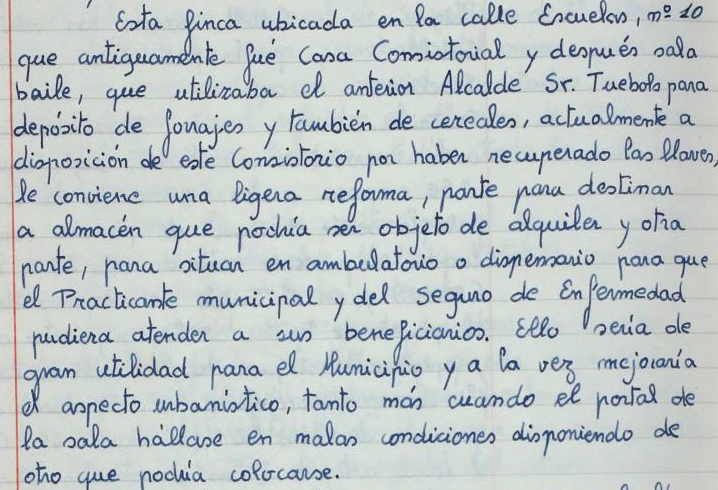 Esta finca ubicada en la calle Escuelas, nº 10
que antiguamente fué Casa Consistorial y después sala
baile, que utilizaba el anterior Alcalde Sr. Tuebols para
depósito de forrajes y también de cereales, actualmente a
disposición de este Consistorio por haber recuperado las llaves,
le conviene una ligera reforma, parte para destinar
a almacén que podría ser objeto de alquiler y otra
parte, para situar en ambulatorio o dispensario para que
el Practicante municipal y del Seguro de Enfermedad
pudiera atender a sus beneficiarios. Ello sería de
gran utilidad para el Municipio y a la vez mejoraría
el aspecto urbanístico, tanto más cuando el portal de
la sala hállase en malas condiciones disponiendo de
otro que podría colocarse.